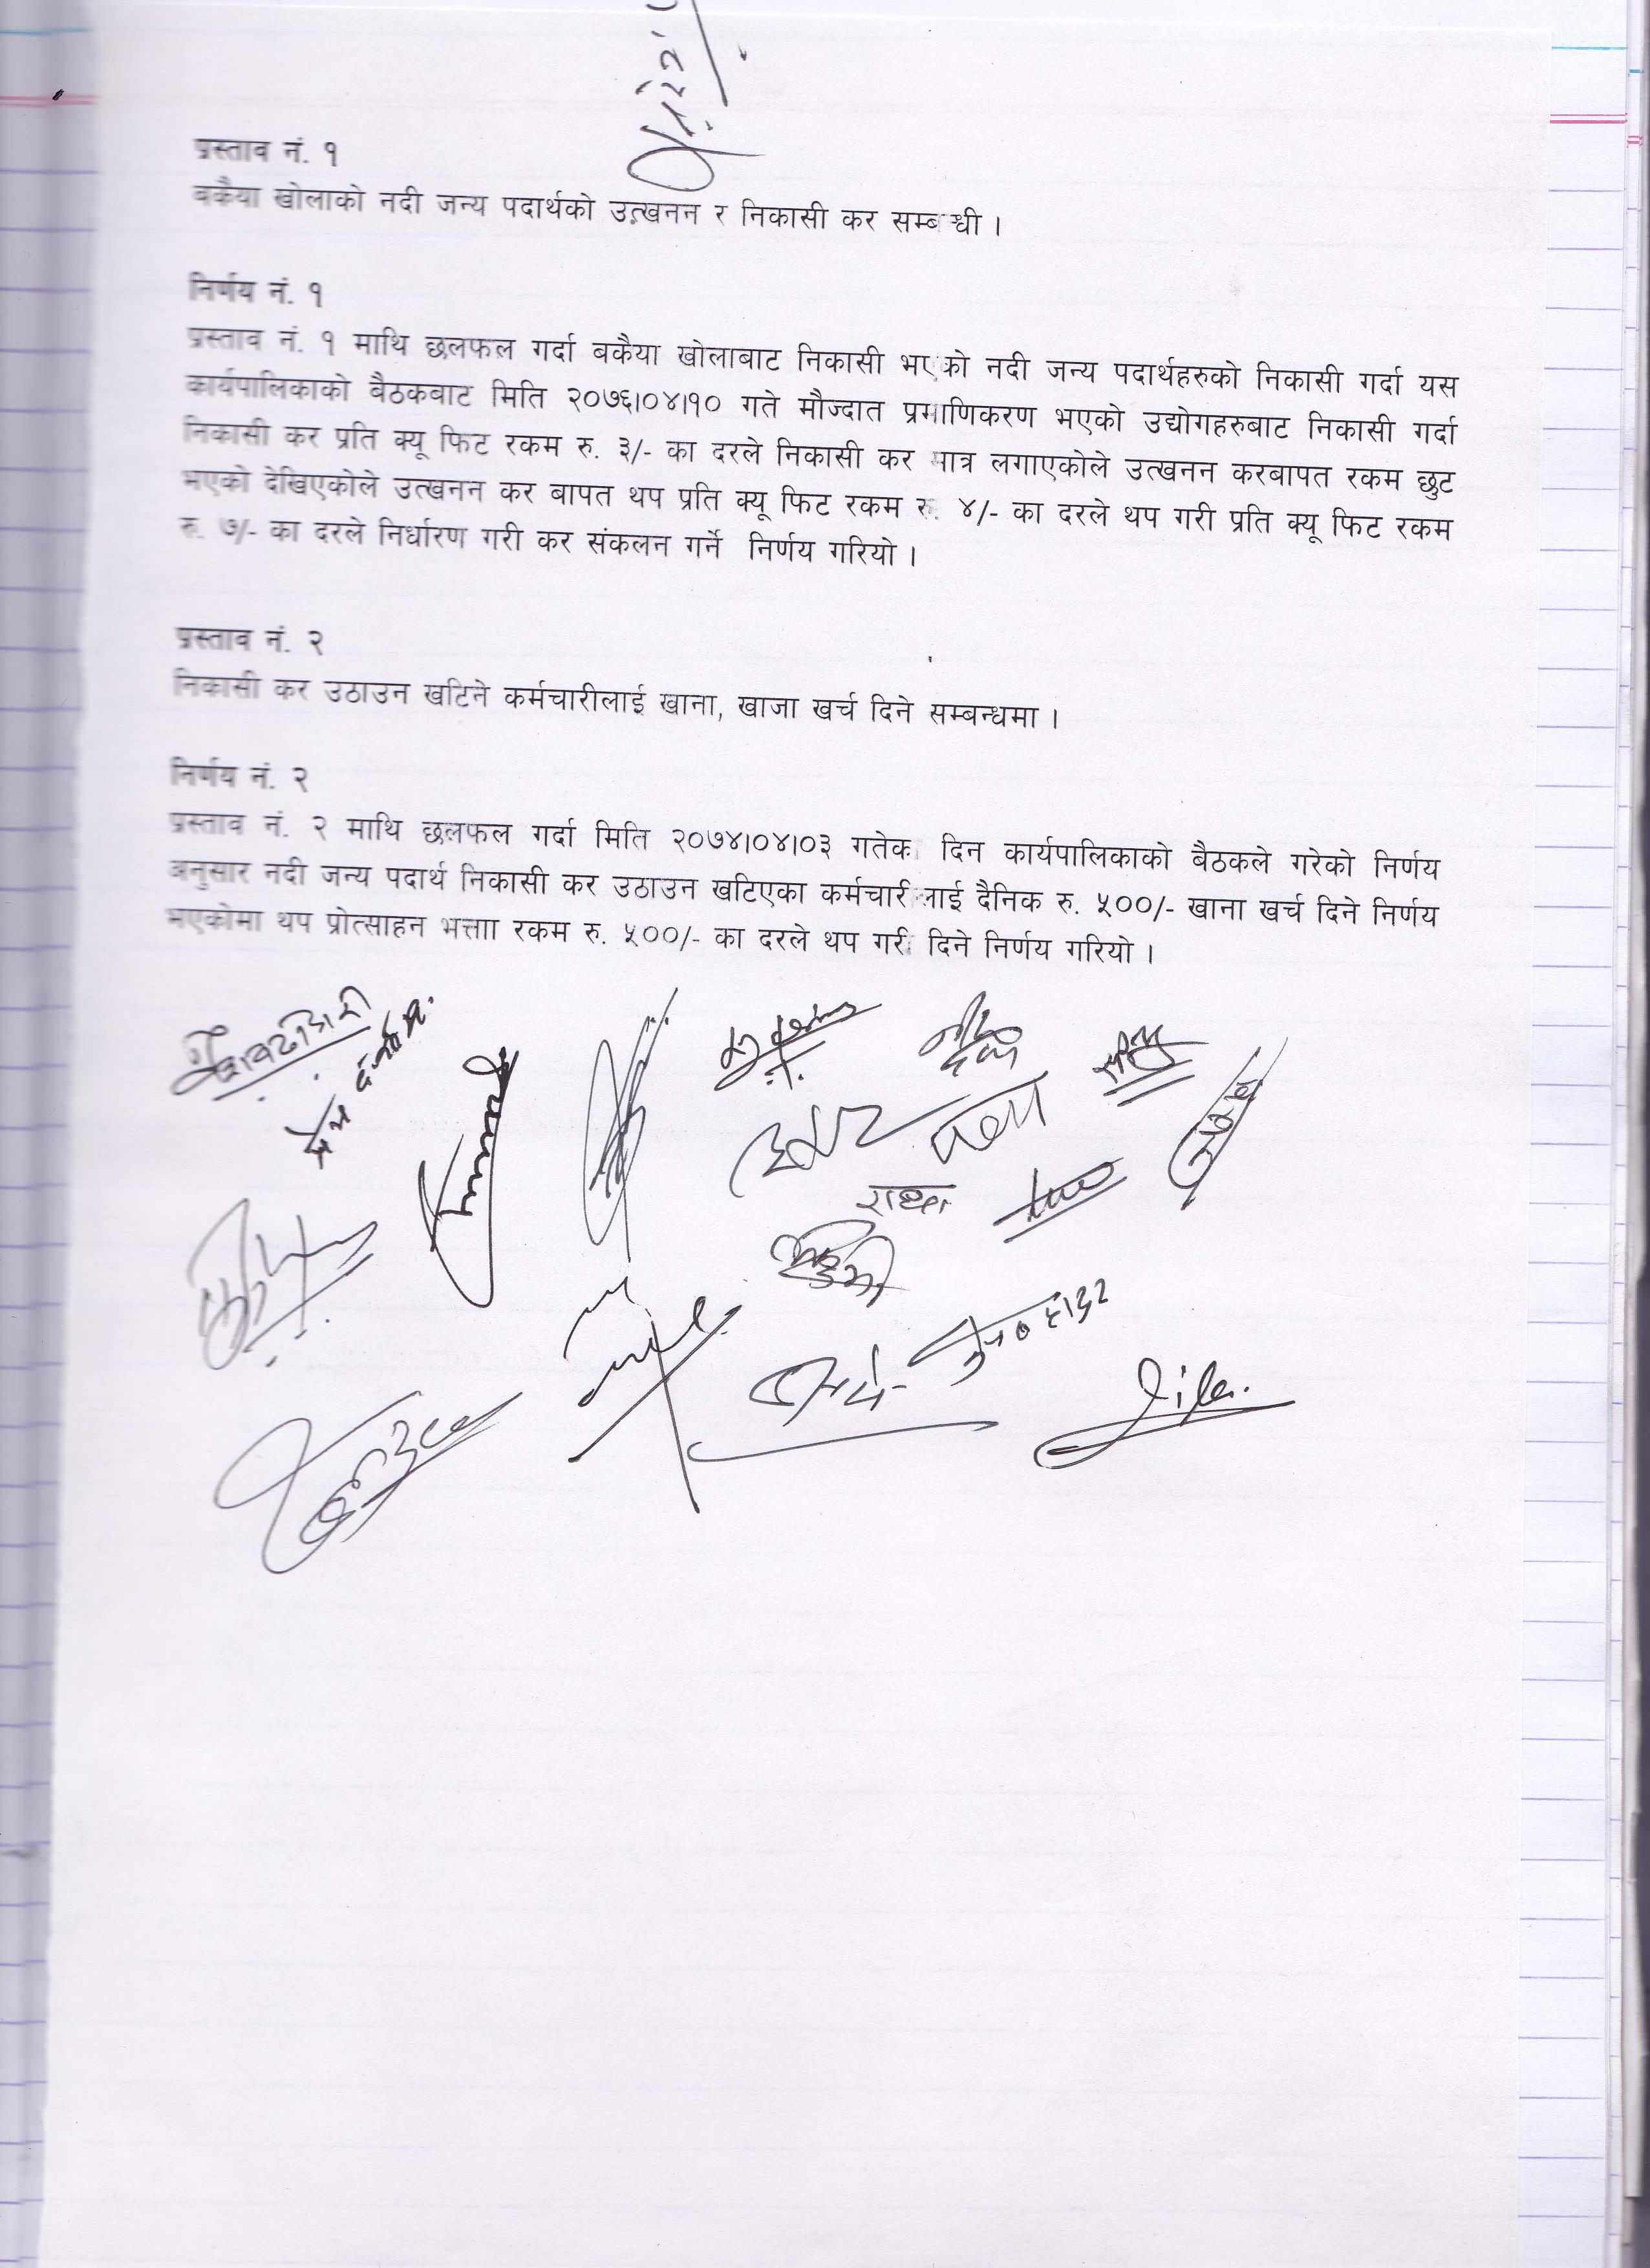 प्रस्ताव नं. १
बकैया खोलाको नदी जन्य पदार्थको उत्खनन र निकासी कर सम्बन्धी ।
निर्णय नं. १
प्रस्ताव नं. १ माथि छलफल गर्दा बकैया खोलाबाट निकासी भएको नदी जन्य पदार्थहरुको निकासी गर्दा यस
कार्यपालिकाको बैठकबाट मिति २०७६।०४।१० गते मौज्दात प्रमाणिकरण भएको उद्योगहरुबाट निकासी गर्दा
निकासी कर प्रति क्यू फिट रकम रु. ३/- का दरले निकासी कर मात्र लगाएकोले उत्खनन करबापत रकम छुट
भएको देखिएकोले उत्खनन कर बापत थप प्रति क्यू फिट रकम रु. ४/- का दरले थप गरी प्रति क्यू फिट रकम
रु. ७/- का दरले निर्धारण गरी कर संकलन गर्ने निर्णय गरियो ।
प्रस्ताव नं. २
निकासी कर उठाउन खटिने कर्मचारीलाई खाना, खाजा खर्च दिने सम्बन्धमा ।
निर्णय नं. २
प्रस्ताव नं. २ माथि छलफल गर्दा मिति २०७४।०४।०३ गतेका दिन कार्यपालिकाको बैठकले गरेको निर्णय
अनुसार नदी जन्य पदार्थ निकासी कर उठाउन खटिएका कर्मचारीलाई दैनिक रु. ५००/- खाना खर्च दिने निर्णय
भएकोमा थप प्रोत्साहन भत्ताा रकम रु. ५००/- का दरले थप गरी दिने निर्णय गरियो ।
राधा